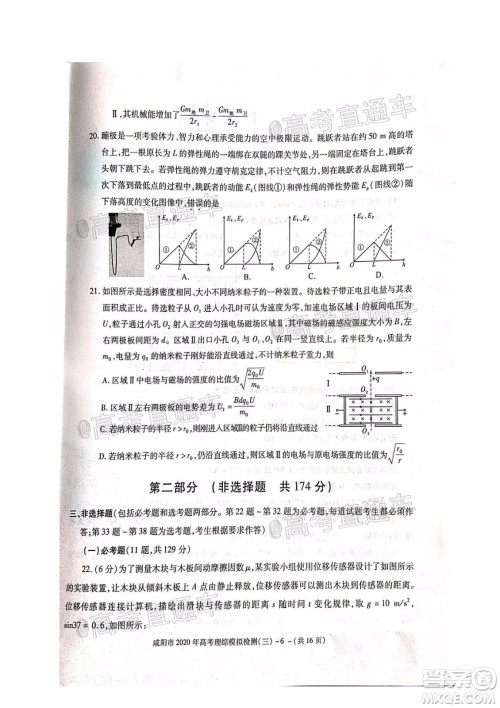 Ⅱ,其机械能增加了 Gm地m卫/2r₁ - Gm地m卫/2r₂
20. 蹦极是一项考验体力、智力和心理承受能力的空中极限运动。跳跃者站在约 50 m 高的塔
台上,把一根原长为 L 的弹性绳的一端绑在双腿的踝关节处,另一端固定在塔台上,跳跃者
头朝下跳下去。若弹性绳的弹力遵守胡克定律,不计空气阻力,则在跳跃者从起跳到第一
次下落到最低点的过程中,跳跃者的动能 Eₖ(图线①)和弹性绳的弹性势能 Eₚ(图线②)随
下落高度的变化图像中,错误的是
Eₖ、Eₚ
Eₖ、Eₚ
Eₖ、Eₚ
Eₖ、Eₚ
① ② O L h
① ② O L h
① ② O L h
① ② O L h
A. B. C. D.
21. 如图所示是选择密度相同、大小不同纳米粒子的一种装置。待选粒子带正电且电量与其表
面积成正比。待选粒子从 O₁ 进入小孔时可认为速度为零,加速电场区域Ⅰ的板间电压为
U,粒子通过小孔 O₂ 射入正交的匀强电场和磁场区域Ⅱ,其中磁场的磁感应强度大小为 B,
左右两极板间距为 d,区域Ⅱ出口小孔 O₃ 与 O₁、O₂ 在同一竖直线上。若半径为 r₀、质量为
m₀、电量为 q₀ 的纳米粒子刚好能沿直线通过,不计纳米粒子重力,则
A. 区域Ⅱ中电场与磁场的强度之比为 √(2q₀U/m₀)
B. 区域Ⅱ左右两极板的电势差为 Bdq₀U/m₀
C. 若纳米粒子的半径 r>r₀,则区域Ⅱ中的粒子仍将沿直线通过
D. 若纳米粒子的半径 r>r₀,粒子仍沿直线通过,则区域Ⅱ的电场与原电场强度之比为 √(r₀/r)
O₁ +q
Ⅰ
O₂
Ⅱ
O₃
第二部分 (非选择题 共 174 分)
三、非选择题(包括必考题和选考题两部分。第 22 题~第 32 题为必考题,每道试题考生都必须作
答;第 33 题-第 38 题为选考题,考生根据要求作答)
(一)必考题(11 题,共 129 分)
22. (6 分)为了测量木块与木板间动摩擦因数,某实验小组使用位移传感器设计了如图所示
的实验装置,让木块从倾斜木板上 A 点由静止释放,位移传感器可以测出木块到传感器的距离。
位移传感器连接计算机,描绘出滑块与传感器的距离 s 随时间 t 变化规律,取 g = 10 m/s²,
sin37 = 0.6,如图所示:
咸阳市 2020 年高考理综模拟检测(三)-6-(共 16 页)
@高考直通车
@高考直通车
@高考直通车
@高考直通车